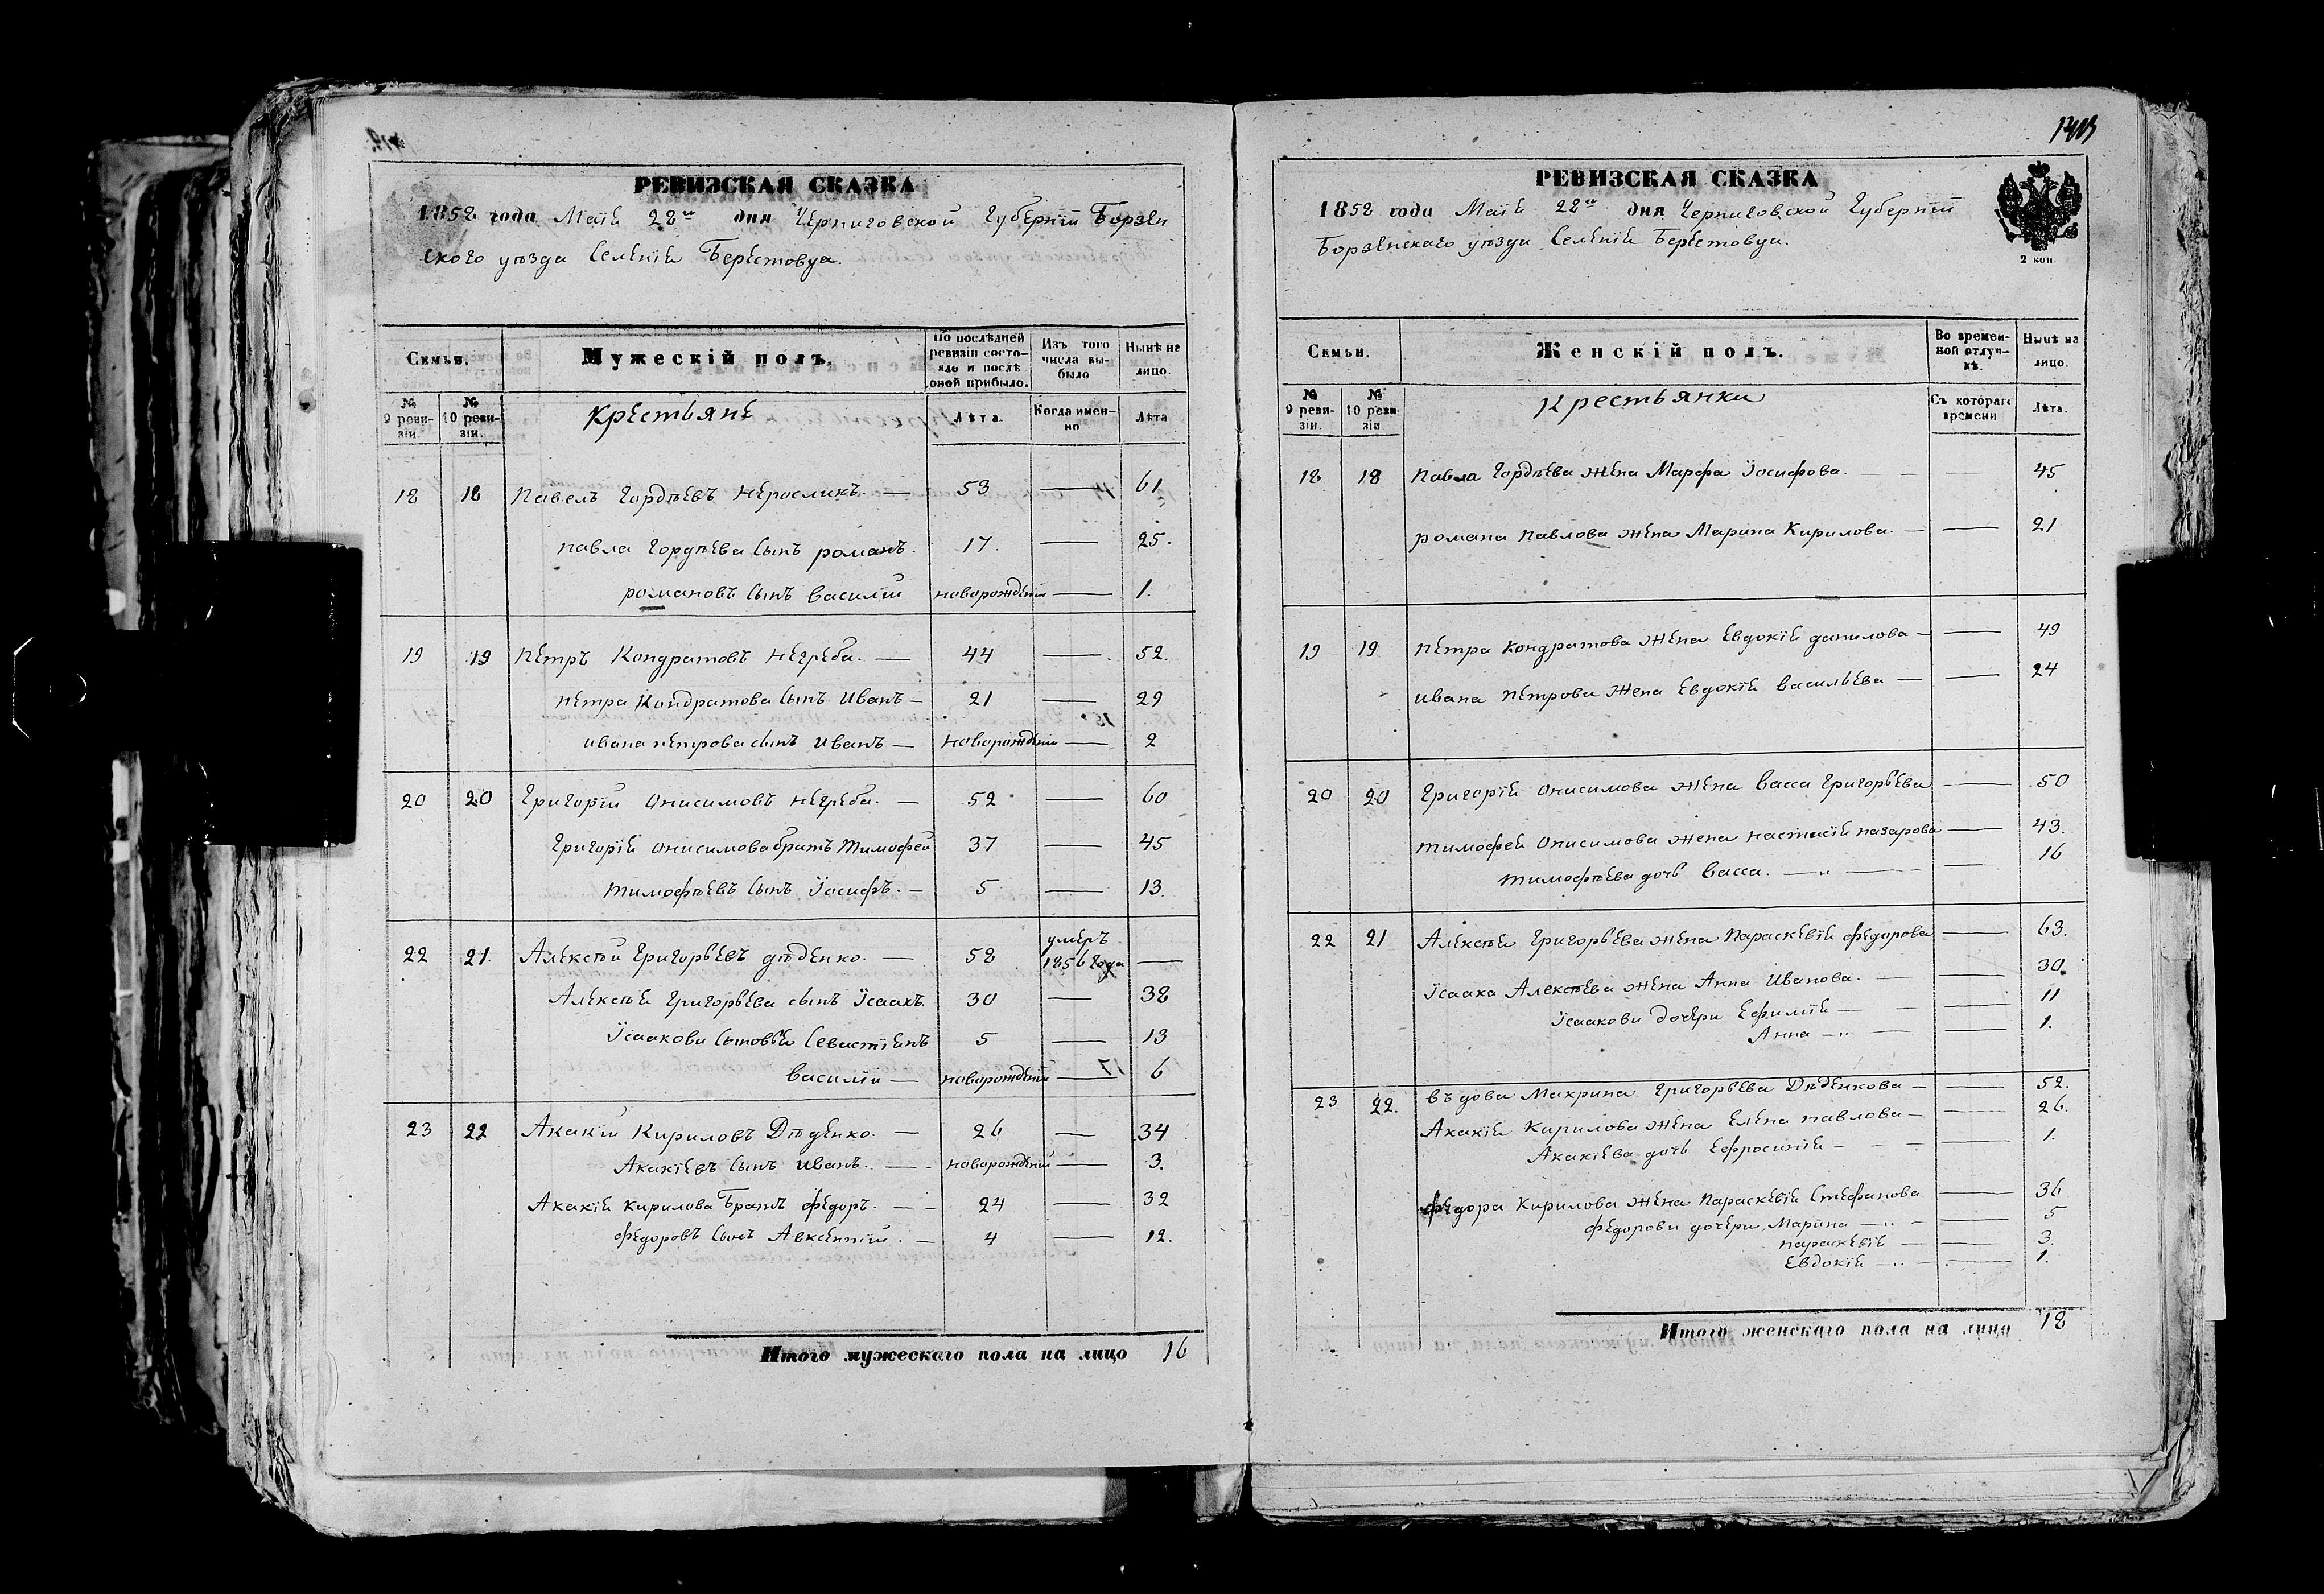 РЕВИЗСКАЯ СКАЗКА
1858 года Маія 28го дня Черниговской Губерніи Борзен
ского уѣзда Селенія Берестовца.
Семьи.
Мужескій полъ.
По послѣдней ревизіи состояло и послѣ оной прибыло.
Изъ того числа выбыло
Нынѣ на лицо.
№ 9 ревизіи.
№ 10 ревизіи.
Крестьяне
Лѣта.
Когда именно
Лѣта
18 18 Павелъ Гордѣевъ Неросликъ. — 53 — 61
Павла Гордѣева сынъ романъ. 17. — 25.
романовъ сынъ василій новорожденій — 1.
19 19 Петръ Кондратовъ Негреба. — 44 — 52.
Петра Кондратова сынъ Иванъ — 21 — 29
ивана петрова сынъ Иванъ — новорожденій — 2
20 20 Григорій Онисимовъ Негреба. — 52 — 60
Григорія Онисимова братъ Тимофей 37 — 45
Тимофѣевъ сынъ Іосифъ. — 5 — 13.
22 21. Алексѣй Григорьевъ дѣденко. — 58 умеръ 1856 года —
Алексѣя Григорьева сынъ Ісаакъ. 30 — 38
Ісаакови сыновья Севастіянъ 5 — 13
василій — новорожденій — 6
23 22 Акакій Кириловъ Дѣденко. — 26 — 34
Акакіевъ сынъ иванъ. — новорожденій — 3.
Акакія Кирилова братъ федоръ. — 24 — 32
федоровъ сынъ Авксентій. — 4 — 12.
Итого мужескаго пола на лицо 16
РЕВИЗСКАЯ СКАЗКА
1858 года Маія 28го дня Черниговской Губерніи
Борзенскаго уѣзда Селенія Берестовца.
2 коп.
Семьи.
Женскій полъ.
Во временной отлучкѣ.
Нынѣ на лицо.
№ 9 ревизіи.
№ 10 ревизіи
Крестьянки
Съ котораго времени
Лѣта.
18 18 Павла Гордѣева жена Марфа Іосифова. — — 45
романа Павлова жена Марина Кирилова. — — 21
19 19 Петра Кондратова жена Евдокія данилова — — 49
ивана Петрова жена Евдокія васильева — — 24
20 20 Григорія Онисимова жена васса Григорьева — 50
Тимофея Онисимова жена настасія назарова — 43.
Тимофѣева дочь васса. — „ — — 16
22 21 Алексѣя Григорьева жена Параскевія федорова — 63.
Ісаака Алексѣева жена Анна Иванова. — — 30.
Ісаакови дочери Ефимія — — 11
Анна — „ — — 1.
23 22. въдова Макрина Григорьева Дѣденкова — — 52.
Акакія Кирилова жена Елена павлова — — 26.
Акакіева дочь Ефросинія — — 1.
федора Кирилова жена Параскевія Стефанова — 36
федорови дочери, Марина — „ — — 5
параскевія — — 3.
Евдокія — „ — — 1.
Итого женскаго пола на лицо 18